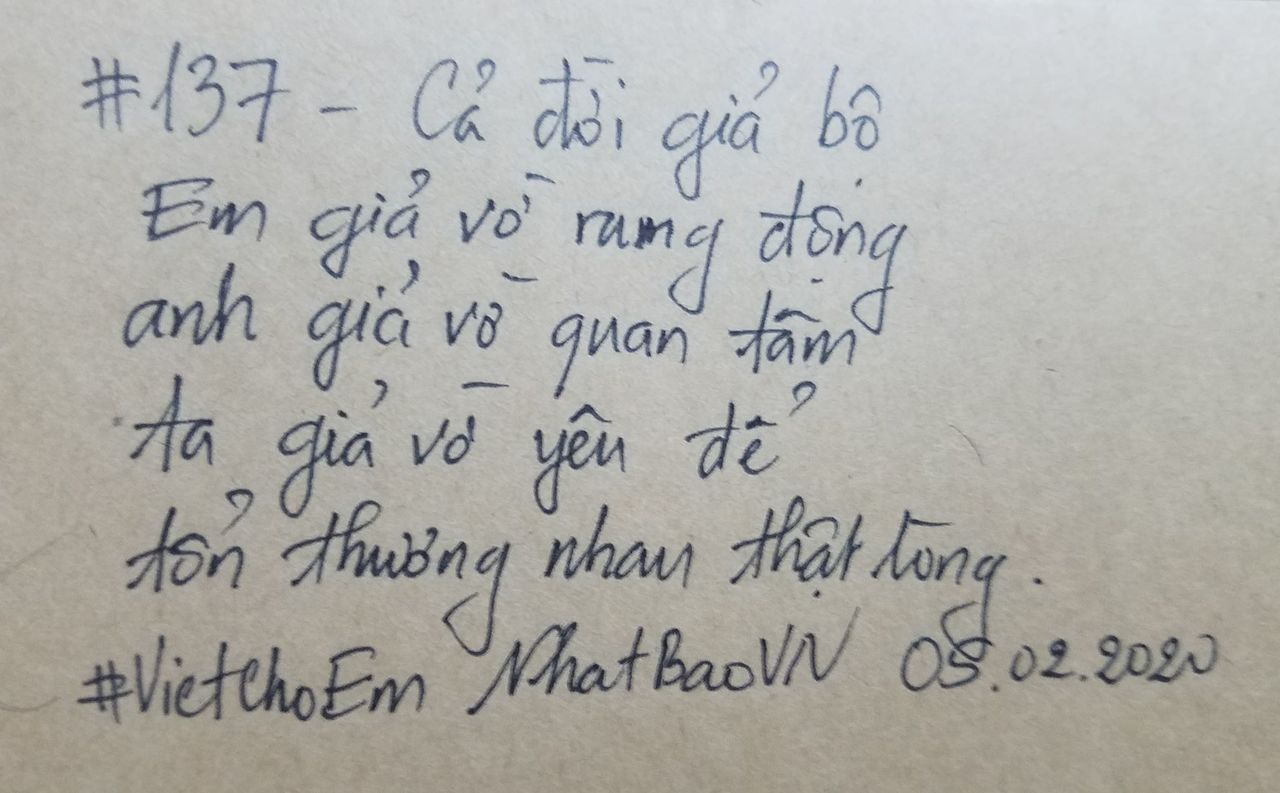 #137 - Cả đời giả bộ
Em giả vờ rung động
anh giả vờ quan tâm
ta giả vờ yêu để
tổn thương nhau thật lòng.
#VietchoEm NhatBaoVN 05.02.2020